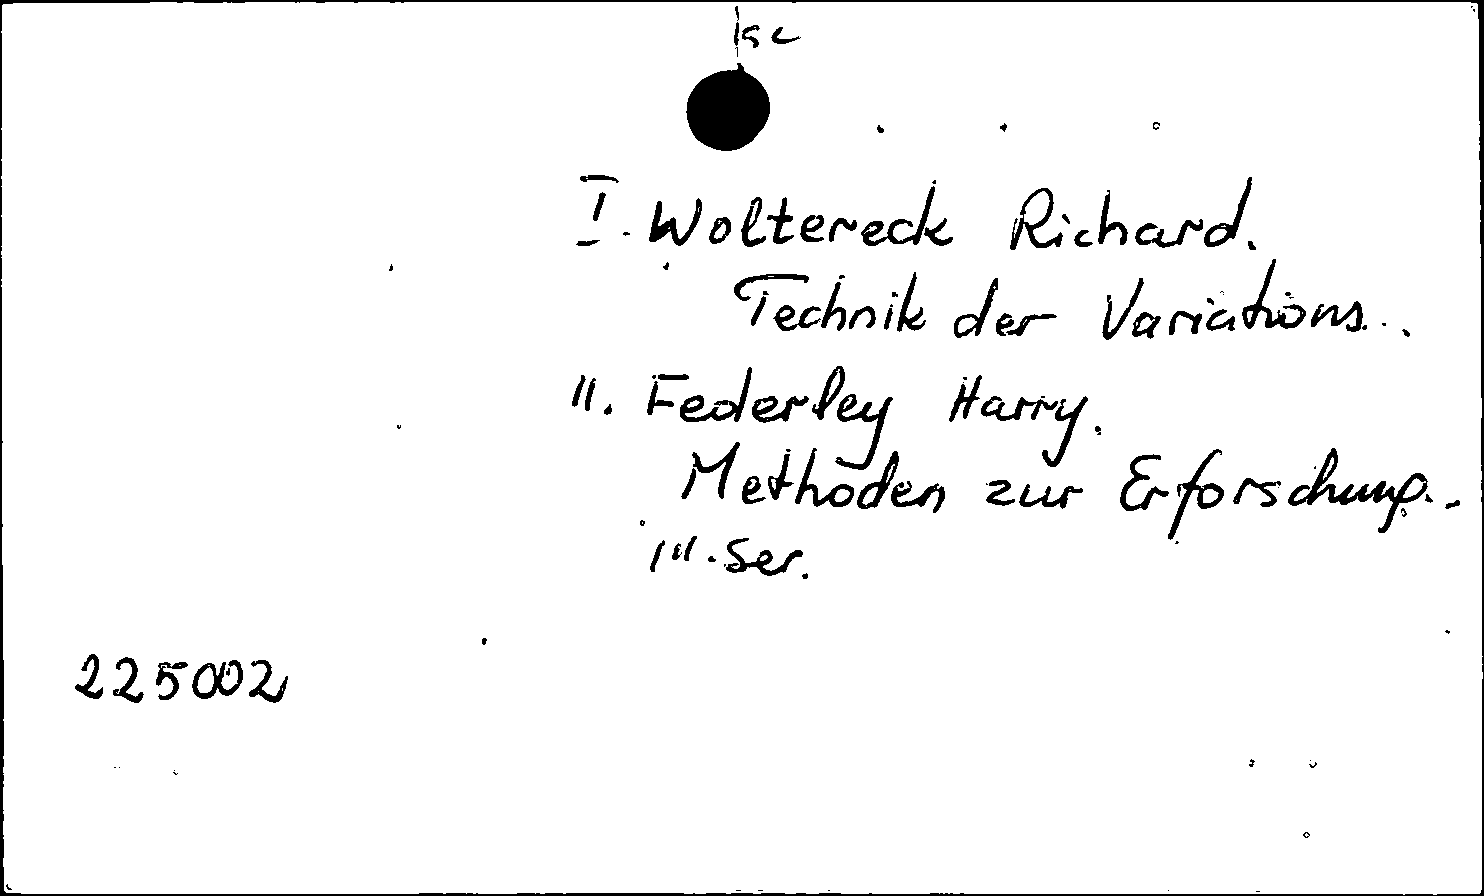 I. Woltereck Richard.
Technik der Variations...
II. Federley Harry.
Methoden zur Erforschung...
III. Ser.
225002